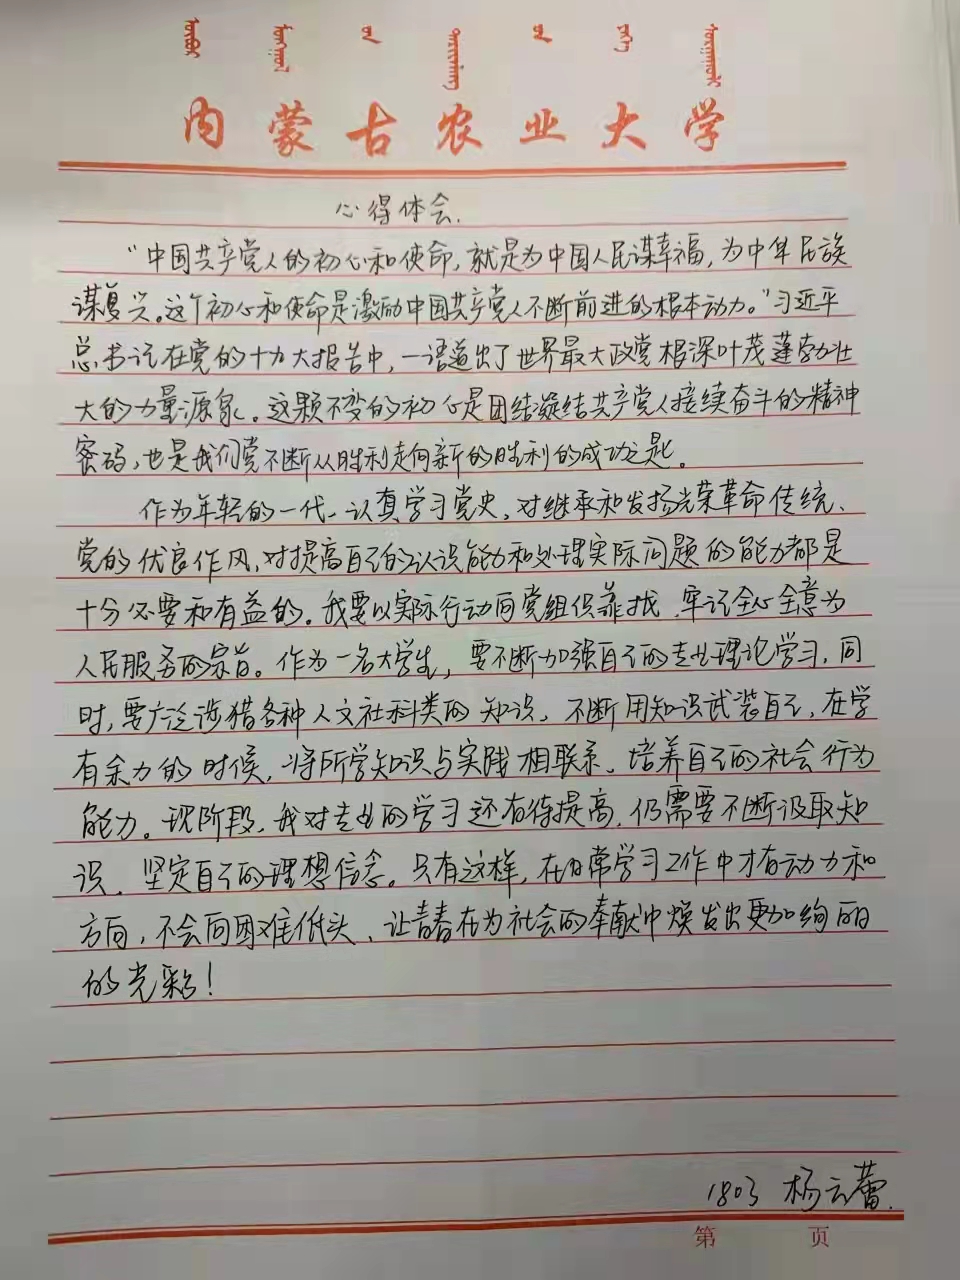 内蒙古农业大学
心得体会.
“中国共产党人的初心和使命,就是为中国人民谋幸福,为中华民族
谋复兴。这个初心和使命是激励中国共产党人不断前进的根本动力。”习近平
总书记在党的十九大报告中,一语道出了世界最大政党根深叶茂蓬勃壮
大的力量源泉。这颗不变的初心是团结凝结共产党人接续奋斗的精神
密码,也是我们党不断从胜利走向新的胜利的成功之匙。
作为年轻的一代、认真学习党史,对继承和发扬光荣革命传统、
党的优良作风,对提高自己的认识能力和处理实际问题的能力都是
十分必要和有益的。我要以实际行动向党组织靠拢,牢记全心全意为
人民服务的宗旨。作为一名大学生,要不断加强自己的专业理论学习,同
时,要广泛涉猎各种人文社科类的知识、不断用知识武装自己,在学
有余力的时候,将所学知识与实践相联系、培养自己的社会行为
能力。现阶段,我对专业的学习还有待提高,仍需要不断汲取知
识、坚定自己的理想信念。只有这样,在日常学习工作中才有动力和
方向,不会向困难低头、让青春在为社会的奉献中焕发出更加绚丽
的光彩!
1803 杨云蕾.
第 页